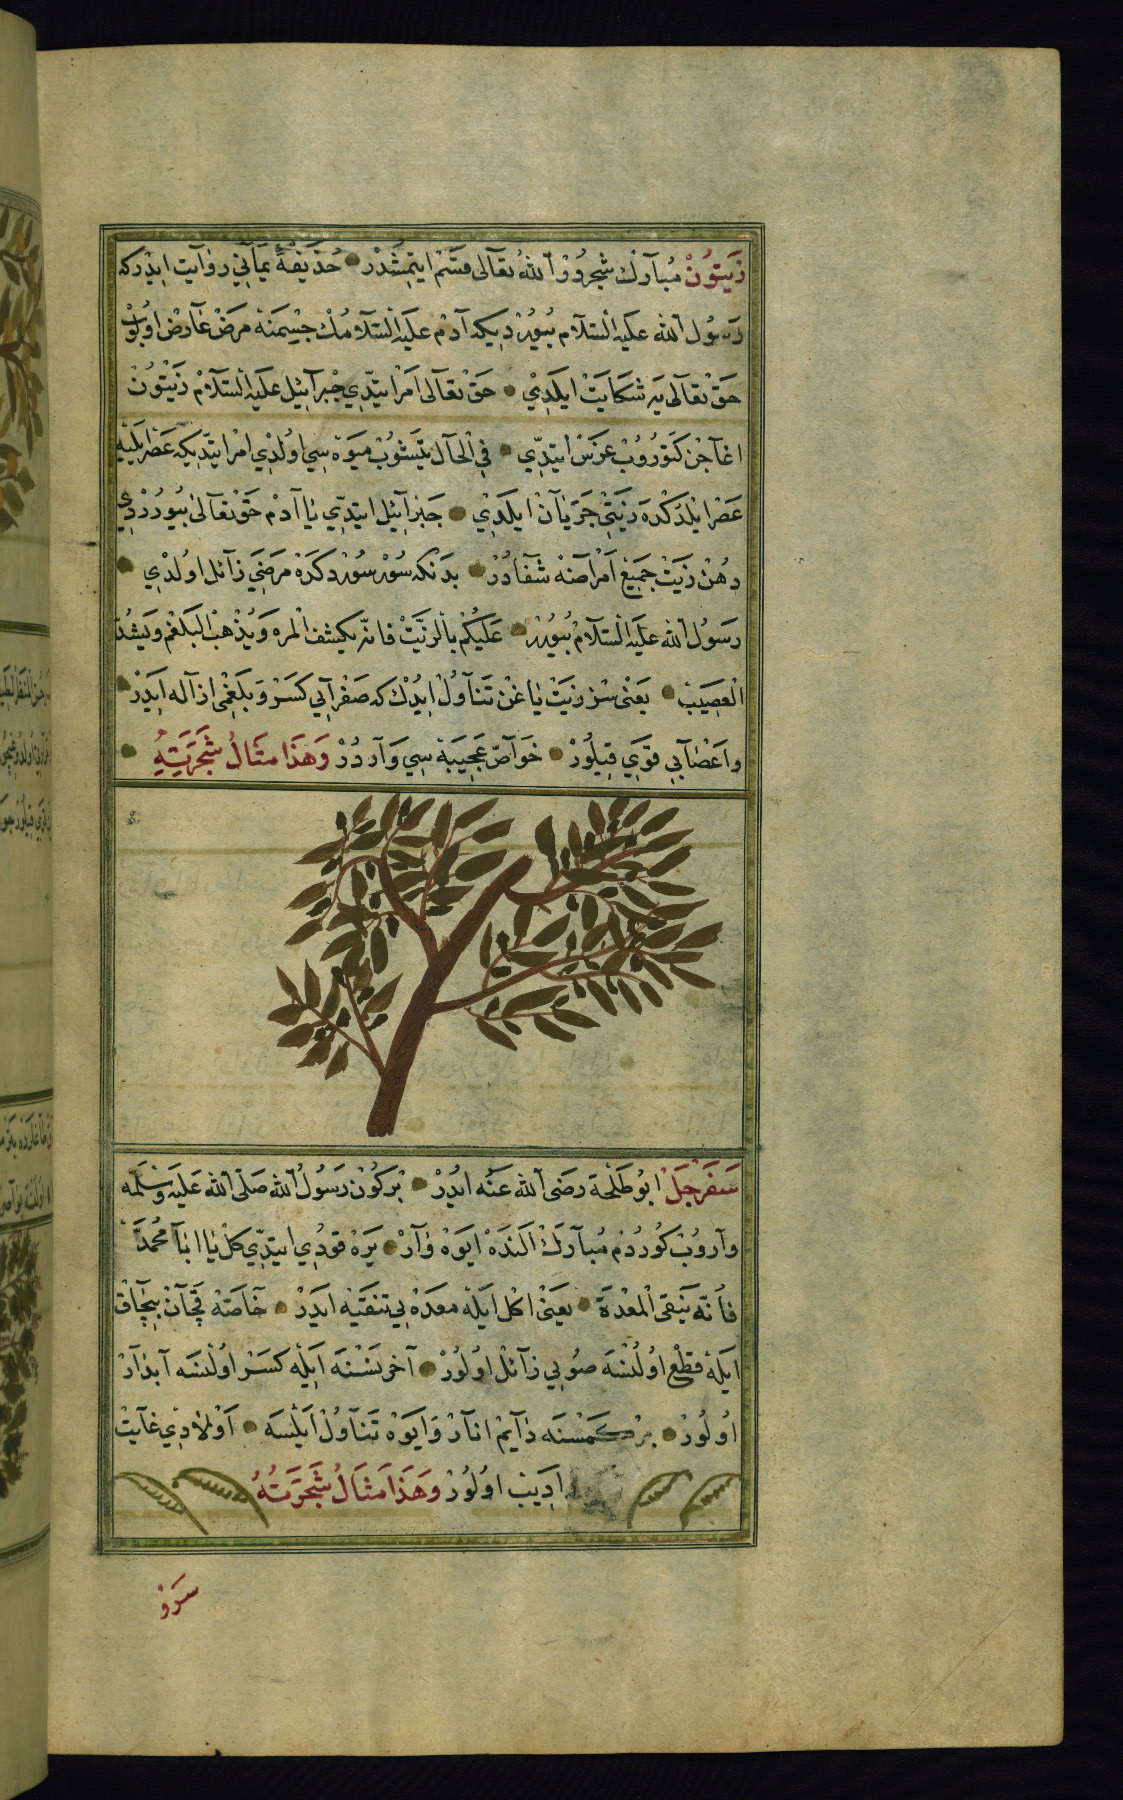 زَيتُونْ مُبآرَك شجردُرْ ٱللهُ تعَآلى قسَمْ ايتمِشدُرْ حُذيفَهٔ يمَآنِي روٰايت ايدَركه
رَسُول ٱلله عَليَه ٱلسَّلآم بُيورُر ديكه آدم عليَه ٱلسَّلآمُڭ جسْمِنَهْ مَرضْ عٰارضْ اوُلوُبْ
حَقْ تعَآلى يَه شكايَتْ ايلَدِيْ حَق تعَآلى امَر ايتدِّي جبرآئِيل عليَه ٱلسَّلآمْ زَيتُونْ
اغاجن كتوُرُوبْ عَرسْ ايتدِّي فِي الْحٰال يتشُوبْ ميَوه سِي اولدِي امرايتديكه عَصْرايليَه
عَصْر ايلدكده زيتِي جريَآنْ ايلدِي جبرآئيل ايتدِّي يٰاآدم حَق تعَآلى بيُورُرْدِي
دهُنْ زيت جَميعْ امَرْاضنه شفآدُرْ بدَنكه سُور سُوردكده مرَضِي زآئل اولدْي
رسُول ٱلله عليَه السَّلآم بيُورُر عَليكُمْ بٱلزَّيَتْ فانّه يكشفُ المرّه وَيُذهب البَلغَمْ ويَشُدّ
العصَيبْ يعَنى سز زيتْ ياغن تنآوُل ايدُڭ كه صَفرآيي كَسَر وَ بَلغَمِي ازآله ايدَرْ
وٱعْضٰآيي قوَي قيلُورْ خوَآصّ عجَيبَهْ سِي وآردُرْ وَهَذَا مثَالُ شَجَرَتِهِ
سَفرَجَلْ ابُو طَلحْة رضَى ٱلله عَنْه ايدُرْ بركون رَسُولُ ٱلله صَلّى ٱلله عَليَه وَسَلَّمه
وٱروُبْ كوردُم مُبآرَك الندَه ايوَه وٰارْ يَرَه قودُي ايتدِّي كلْ يٰا ابٰا محُمدَّ
فأنّه يَنقى المعْدَة يعَنى اكل ايله معده يي تنقيَه ايدَرْ خٰاصَّهْ قچآنْ بيچآق
ايله قطْع اولُنسه صُويي زآئل اولُورْ آخر نسنَه ايله كسَر اولنسَه آبدٰآرْ
اولُورْ بر كمسنه دٰايم انآرْ وَايوَه تنآوُلْ ايلسَه اوْلٰادِي غآيتْ
اديَبْ اولُورْ وَهَذَا مَثَالُ شَجَرَتُهُ
سَرْوْ